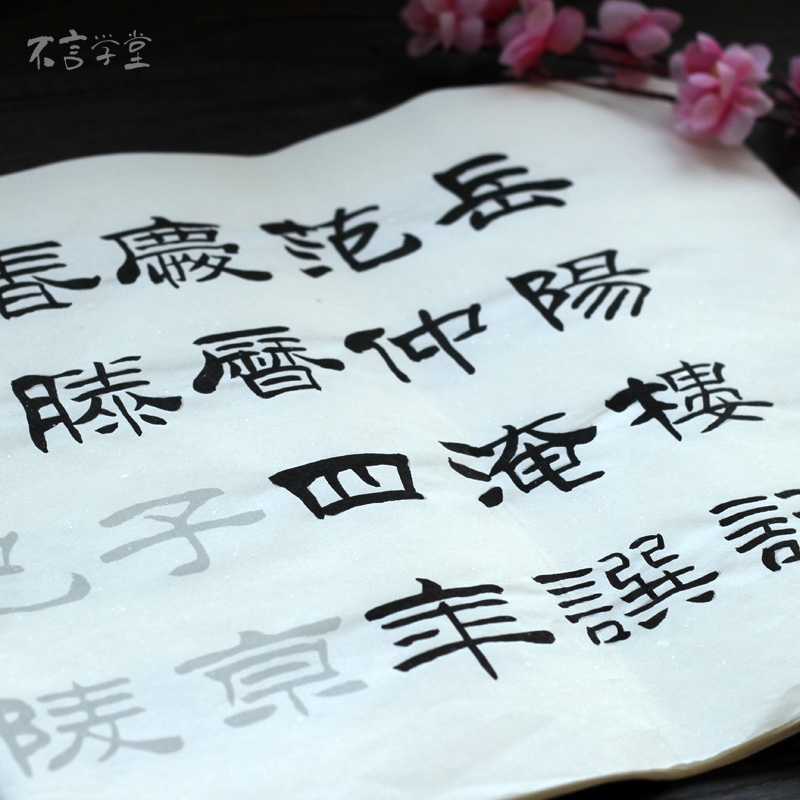 不言学堂
岳陽樓記
范仲淹譔
慶曆四年
春滕子京
巴陵